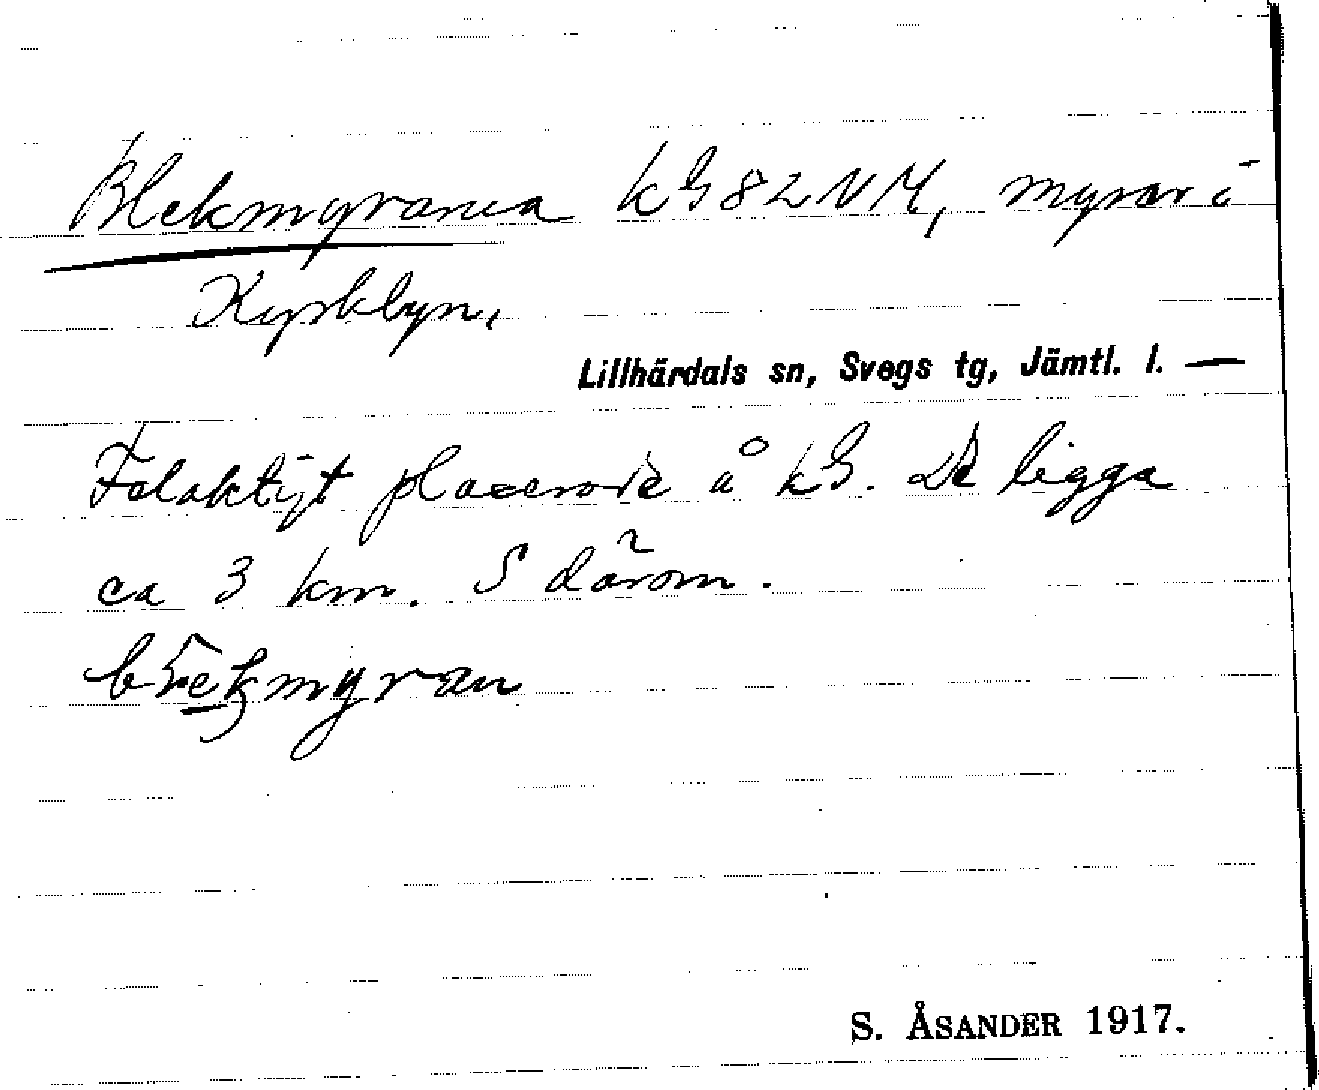 Blekmyrarna kG 82 NV M, myrar i
Kyrkbyn,
Lillhärdals sn, Svegs tg, Jämtl. l. —
Felaktigt placerade å kG. De ligga
ca 3 km. S därom.
myran
S. ÅSANDER 1917.